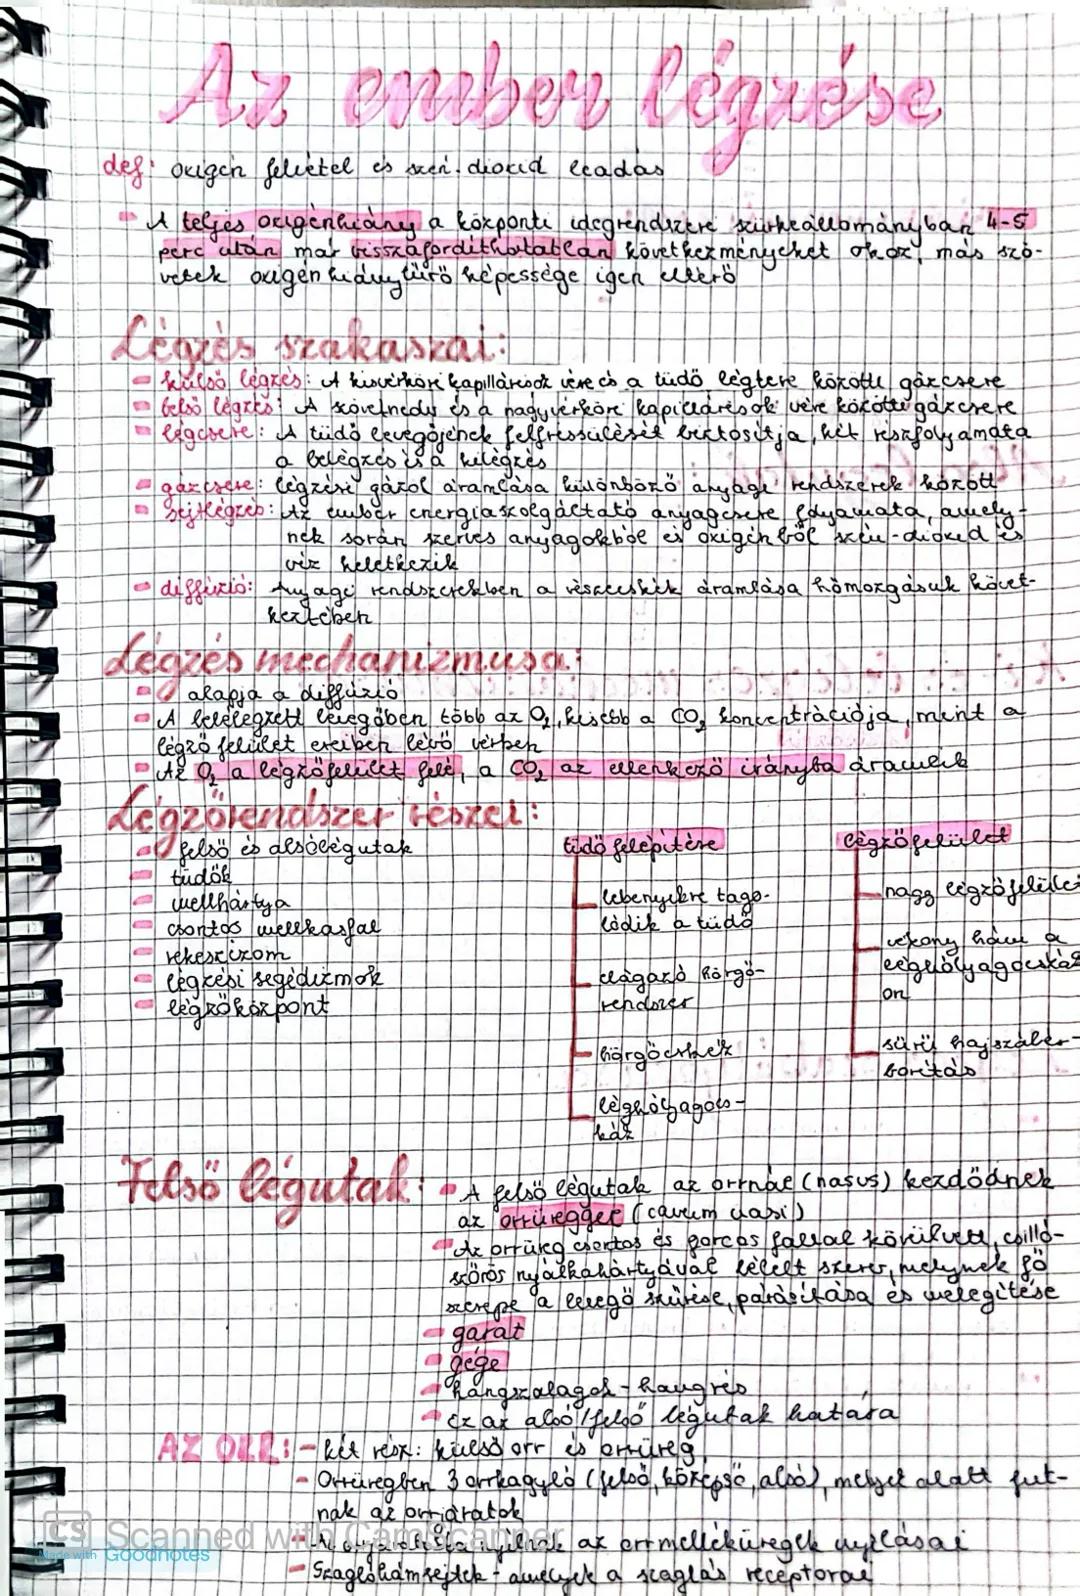 Az ember légzése
def: oxigén felvétel és szén-dioxid leadás
A teljes oxigénhiány a központi idegrendszere szürkeállományban 4-5
perc után már visszafordíthatatlan következményeket okoz, más szö-
vetek oxigén hiánytűrő képessége igen eltérő
Légzés szakaszai:
külső légzés: A kisvérköri kapillárisok vére és a tüdő légtere közötti gázcsere
belső légzés: A szövetnedv és a nagyvérköri kapillárisok vére közötti gázcsere
légcsere: A tüdő levegőjének felfrissülését biztosítja, két részfolyamata
a belégzés és a kilégzés
gázcsere: légzési gázok áramlása különböző anyagi rendszerek között
sejtlégzés: Az ember energiaszolgáltató anyagcsere folyamata, amely-
nek során szerves anyagokból és oxigénből szén-dioxid és
víz keletkezik
diffúzió: Anyagi rendszerekben a részecskék áramlása hőmozgásuk követ-
keztében
Légzés mechanizmusa:
alapja a diffúzió
A belélegzett levegőben több az O₂, kisebb a CO₂ koncentrációja, mint a
légző felület ereiben lévő vérben
Az O₂ a légzőfelület felé, a CO₂ az ellenkező irányba áramlik
Légzőrendszer részei:
felső és alsólégutak
tüdők
mellhártya
csontos mellkasfal
rekeszizom
légzési segédizmok
légzőközpont
tüdő felépítése
lebenyekre tago-
lódik a tüdő
elágazó hörgő-
rendszer
hörgőcskék
léghólyagocs-
kák
légzőfelület
nagy légzőfelüle
vékony hám a
léghólyagocskák
on
sűrű hajszálér-
borítás
Felső légutak:
A felső légutak az orrnál (nasus) kezdődnek
az orrüreggel (cavum nasi)
Az orrüreg csontos és porcos fallal körülvett, csilló-
szőrös nyálkahártyával bélelt szerv, melynek fő
szerepe a levegő szűrése, párásítása és melegítése
garat
gége
hangszalagok - hangrés
ez az alsó/felső légutak határa
AZ ORR: - két rész: külső orr és orrüreg
- Orrüregben 3 orrkagyló (felső, középső, alsó), melyek alatt fut-
nak az orrjáratok
nyílnak az orrmelléküregek nyílásai
- Szaglóhámsejtek - amelyek a szaglás receptorai
CS Scanned with CamScanner
Made with Goodnotes